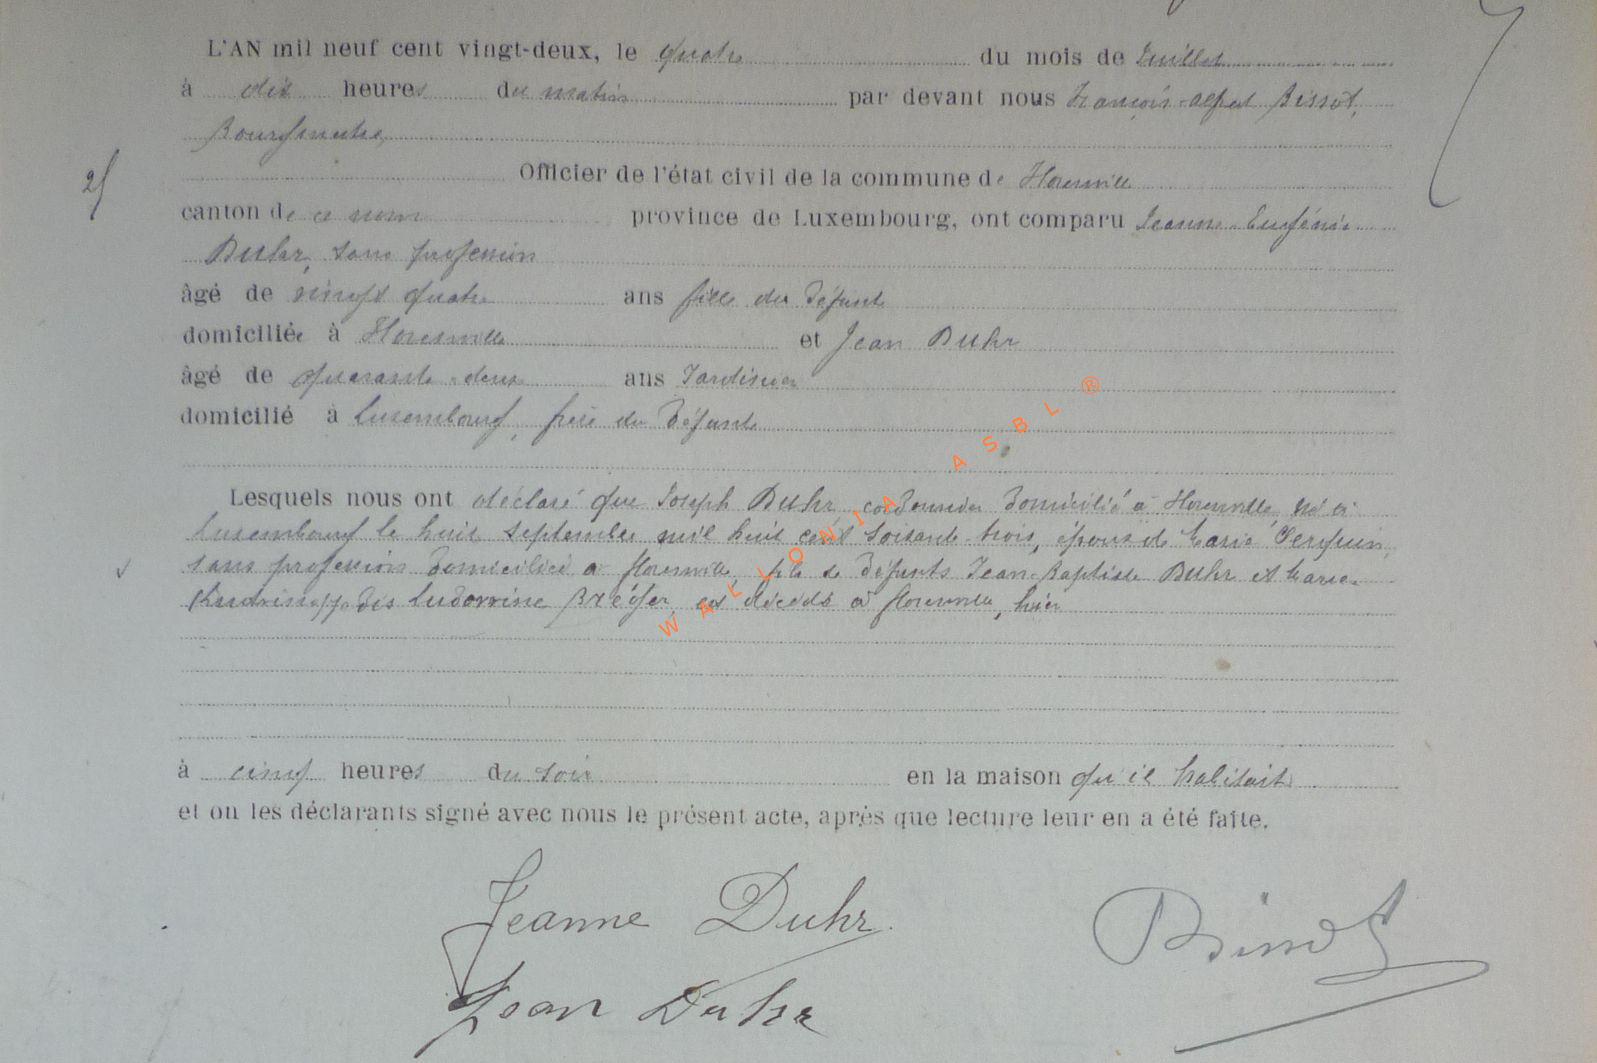 L'AN mil neuf cent vingt-deux, le quatre du mois de Juillet
à dix heures du matin par devant nous François-Alfred Bissot,
Bourgmestre,
Officier de l'état civil de la commune de Florenville
25
canton de ce nom province de Luxembourg, ont comparu Jeanne-Eugénie
Duhr, sans profession
âgé de vingt quatre ans fille du défunt
domiciliée à Florenville et Jean Duhr
âgé de quarante-deux ans Jardinier
domicilié à Luxembourg, frère du défunt
Lesquels nous ont déclaré que Joseph Duhr, cordonnier domicilié à Florenville, né à
Luxembourg le huit septembre mil huit cent soixante-trois, époux de Marie
sans profession domiciliée à Florenville, fils de défunts Jean-Baptiste Duhr et Marie
dis Ludovine est décédé à Florenville, hier
à cinq heures du soir en la maison qu'il habitait
et ont les déclarants signé avec nous le présent acte, après que lecture leur en a été faite.
Jeanne Duhr
Bissot
Jean Duhr
WALLONIA ASBL ®